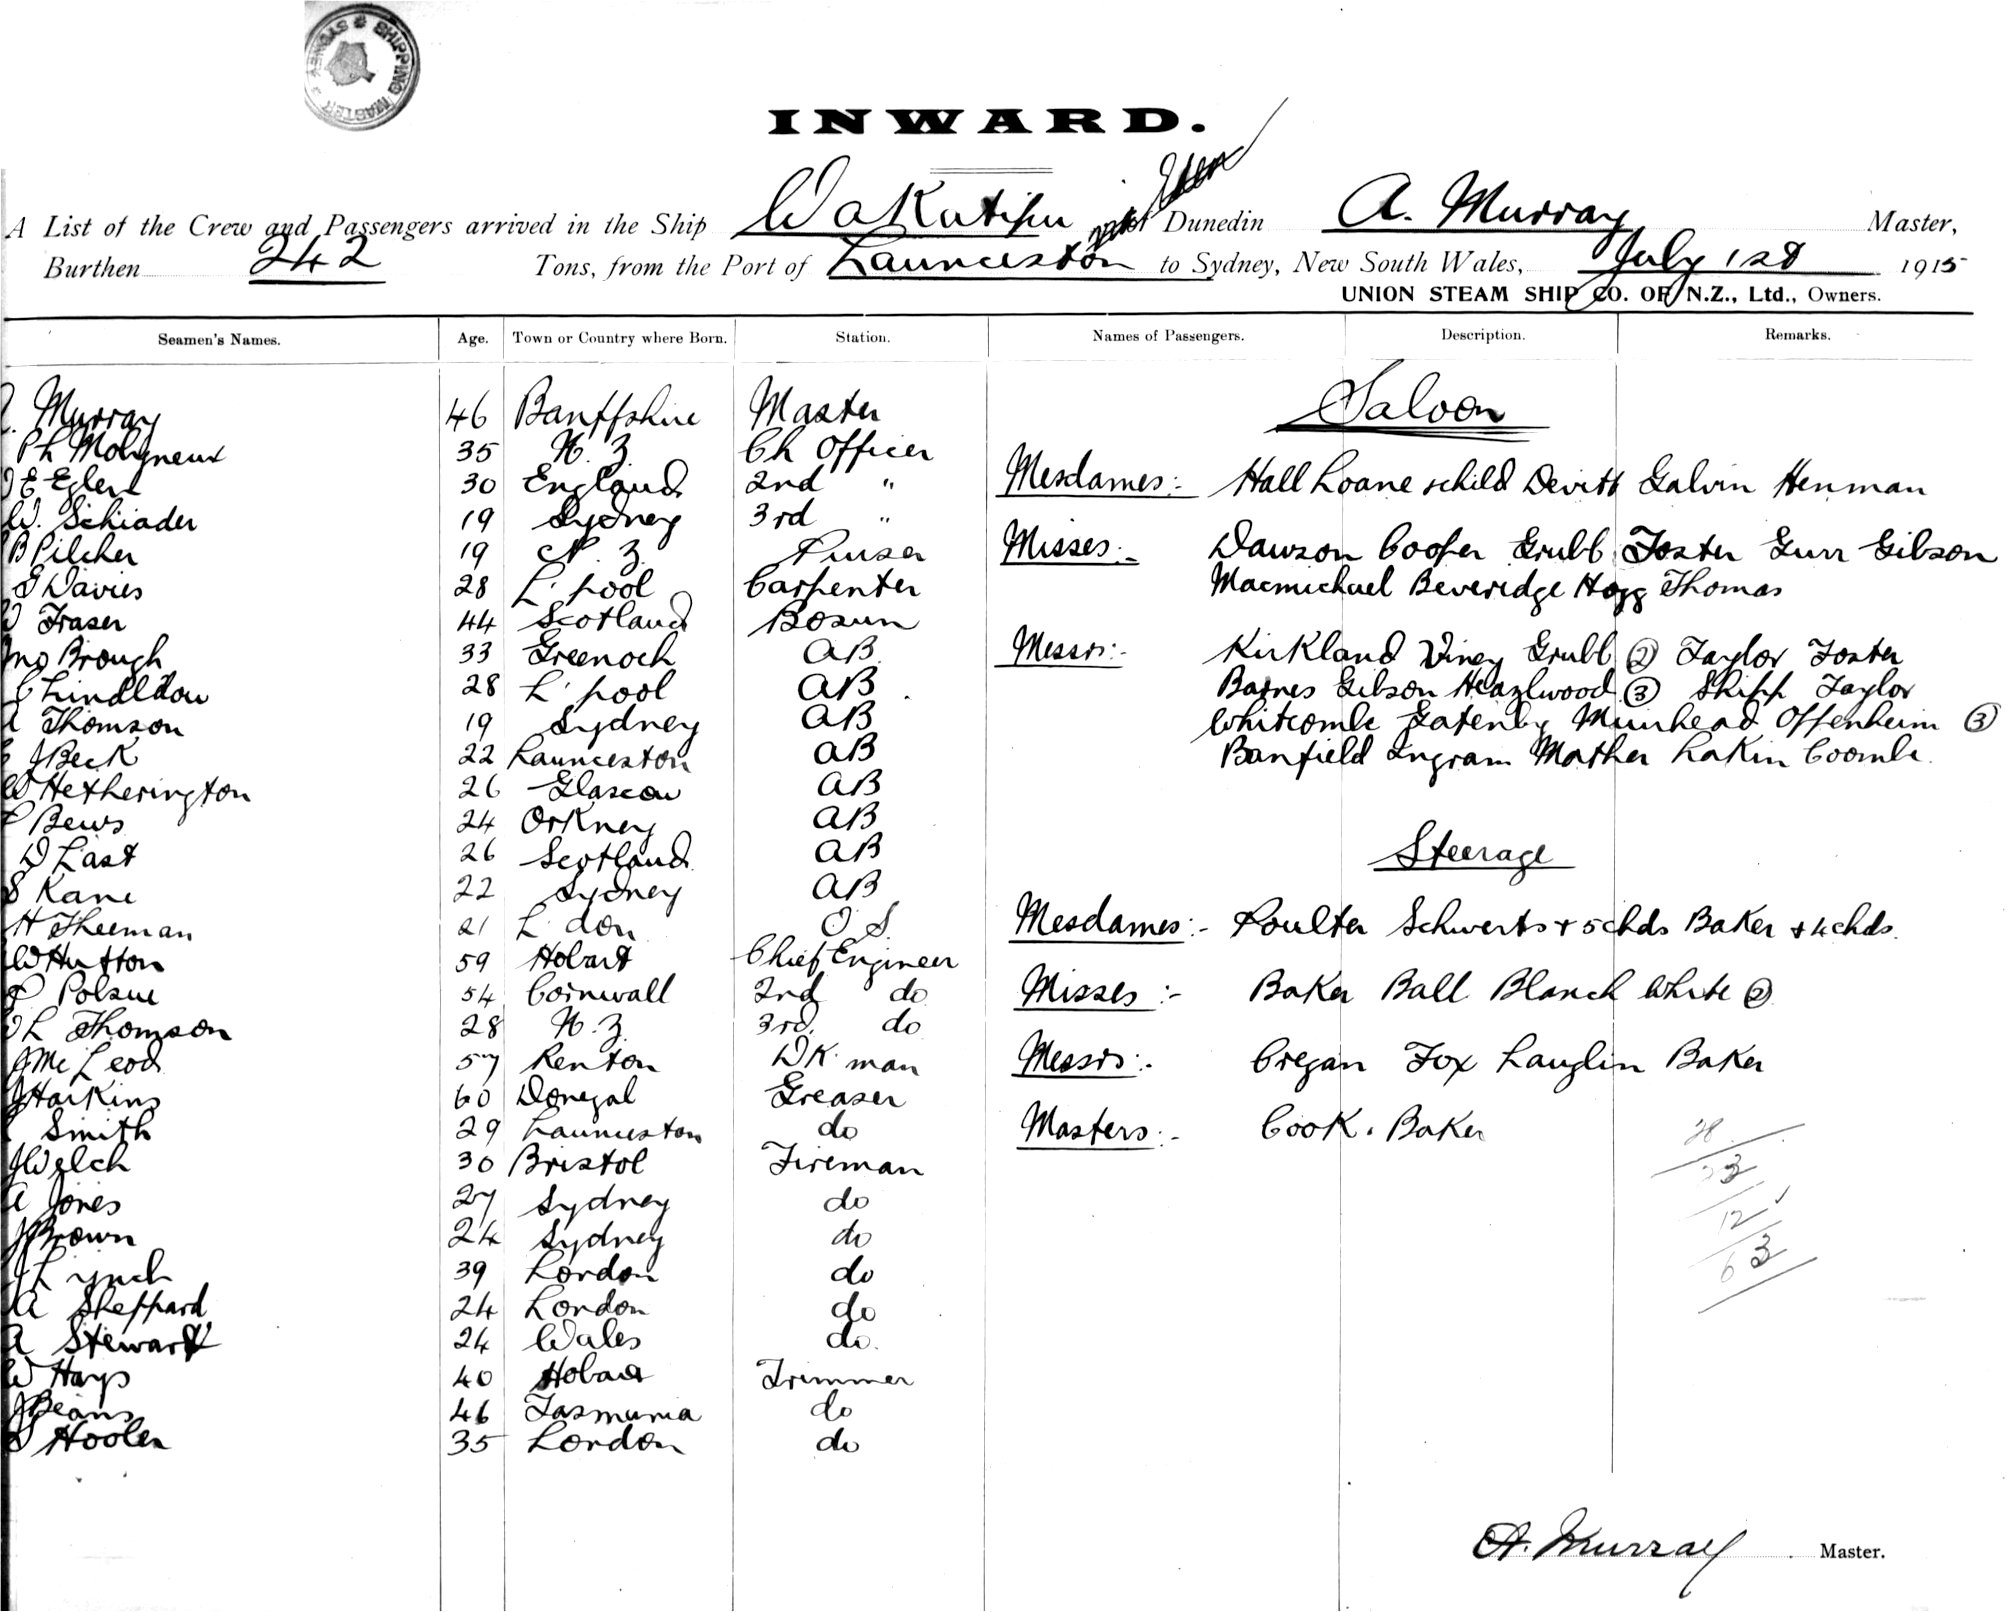 SHIPPING MASTER SYDNEY
INWARD.
A List of the Crew and Passengers arrived in the Ship Wakatipu of Dunedin A. Murray Master,
Burthen 242 Tons, from the Port of Launceston to Sydney, New South Wales, July 1st 1915
UNION STEAM SHIP CO. OF N.Z., Ltd., Owners.
Seamen's Names. Age. Town or Country where Born. Station. Names of Passengers. Description. Remarks.
Murray 46 Banffshire Master
Saloon
Ph Molyneux 35 N.Z. Ch Officer
E Eglert 30 England 2nd "
Mesdames:- Hall Loane & child Devitt Galvin Henman
W. Schiader 19 Sydney 3rd "
B Pilcher 19 N.Z. Purser
Misses:- Dawson Cooper Grubb Foster Gurr Gibson
Davies 28 L'pool Carpenter
Macmichael Beveridge Hogg Thomas
Fraser 44 Scotland Bosun
Jno Brough 33 Greenock AB
Messrs:- Kirkland Viney Grubb (2) Taylor Foster
28 L'pool AB
Barnes Gibson Heazlwood (3) Shipp Taylor
Thomson 19 Sydney AB
Whitcombe Gatenby Muirhead Offenheim (3)
J Beck 22 Launceston AB
Banfield Ingram Mather Lakin Coombe
W Hetherington 26 Glascow AB
Bews 24 Orkney AB
D East 26 Scotland AB
Steerage
S Kane 22 Sydney AB
H Theeman 21 L'don O.S.
Mesdames:- Poulter Schwerts + 5 chds Baker + 4 chds.
W Hutton 59 Hobart Chief Engineer
Polsue 54 Cornwall 2nd do
Misses:- Baker Ball Blanch White (2)
L Thomson 28 N.Z. 3rd. do
J Mc Leod 57 Renton DK man
Messrs:- Cregan Fox Lauglin Baker
J Harkins 60 Donegal Greaser
Smith 29 Launceston do
Masters:- Cook. Baker
J Welch 30 Bristol Fireman
28
A Jones 27 Sydney do
23
J Brown 24 Sydney do
12
J Lynch 39 London do
63
A Sheppard 24 London do
A Stewart 24 Wales do.
W Hays 40 Hobart Trimmer
J Beans 46 Tasmania do
Hooler 35 London do
A. Murray Master.